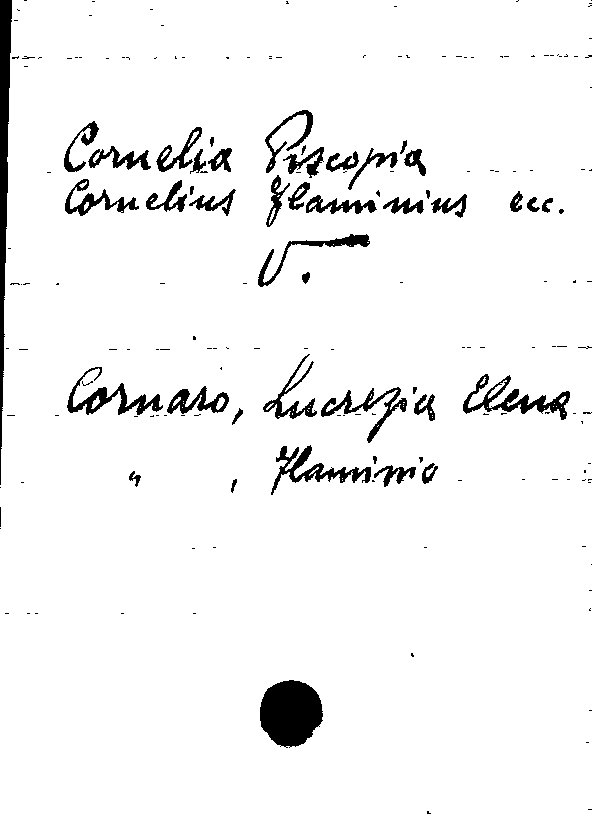 Cornelia Piscopia
Cornelius Flaminius ecc.
V.
Cornaro, Lucrezia Elena
" , Flaminio